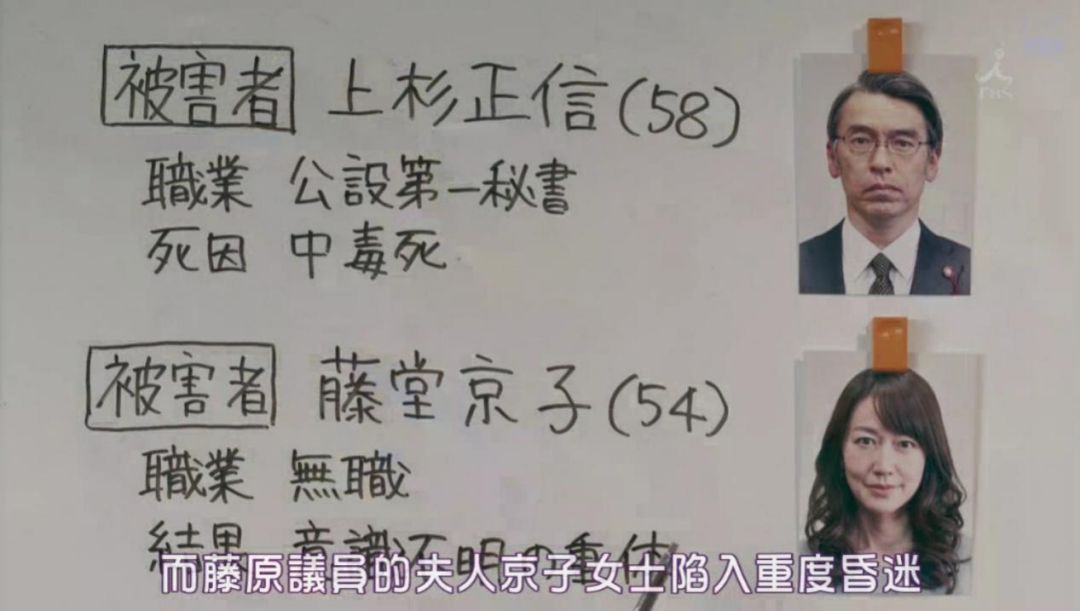 被害者 上杉正信(58)
職業 公設第一秘書
死因 中毒死
被害者 藤堂京子(54)
職業 無職
結果 意識不明の重体
而藤原議員的夫人京子女士陷入重度昏迷
TBS